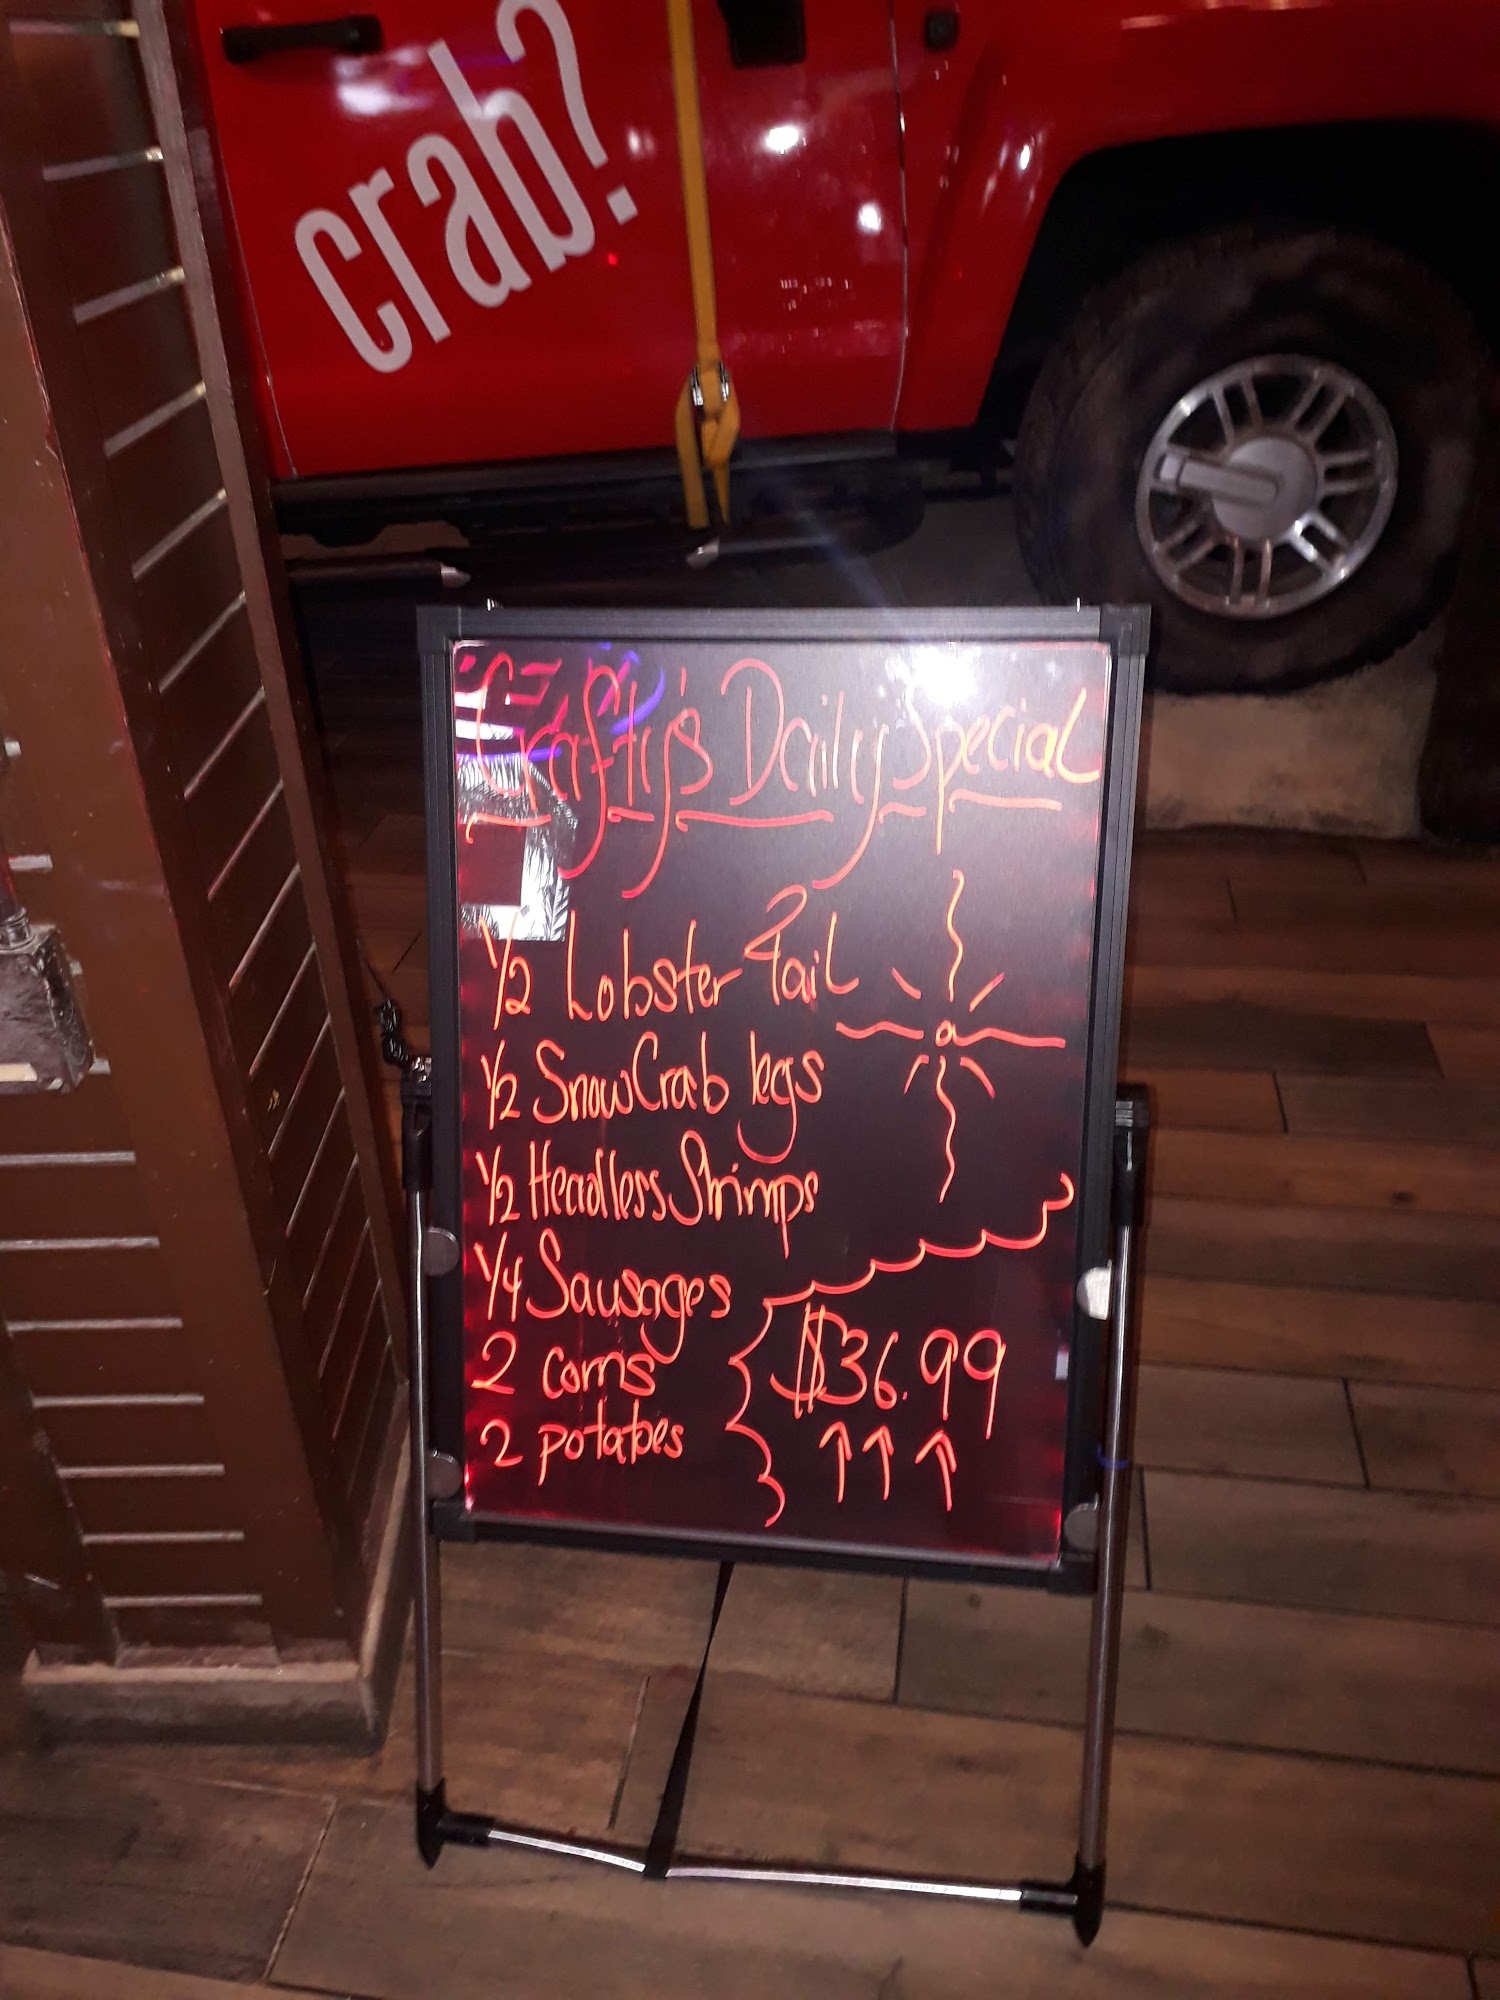 crab?
Crafty's Daily Special
1/2 Lobster Tail
1/2 Snow Crab legs
1/2 Headless Shrimps
1/4 Sausages
2 corns
2 potatoes
$36.99